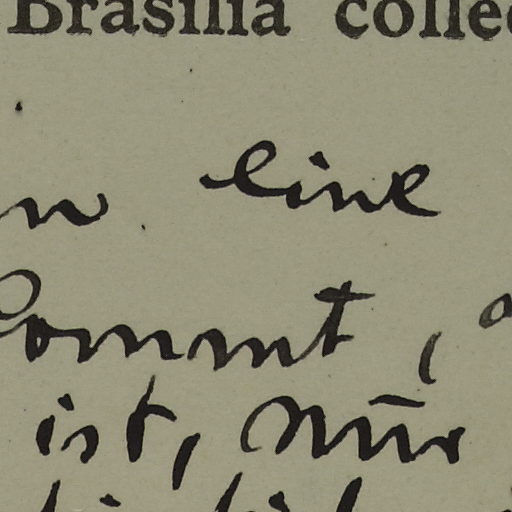 Brasilia colle
n eine
kommt,
ist, nur